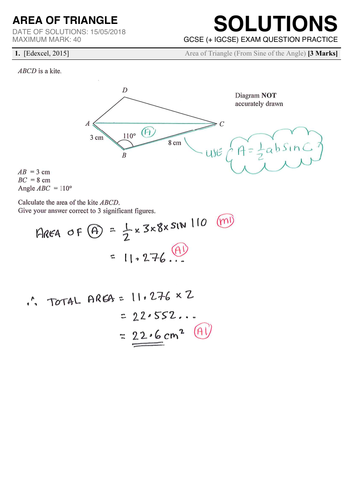 AREA OF TRIANGLE
SOLUTIONS
DATE OF SOLUTIONS: 15/05/2018
MAXIMUM MARK: 40
GCSE (+ IGCSE) EXAM QUESTION PRACTICE
1. [Edexcel, 2015]
Area of Triangle (From Sine of the Angle) [3 Marks]
ABCD is a kite.
D
Diagram NOT
accurately drawn
A
C
3 cm
110°
A
8 cm
B
USE A = 1/2 ab sin C
AB = 3 cm
BC = 8 cm
Angle ABC = 110°
Calculate the area of the kite ABCD.
Give your answer correct to 3 significant figures.
AREA OF A = 1/2 × 3 × 8 × SIN 110 M1
= 11.276... A1
∴ TOTAL AREA = 11.276 × 2
= 22.552...
= 22.6 cm² A1